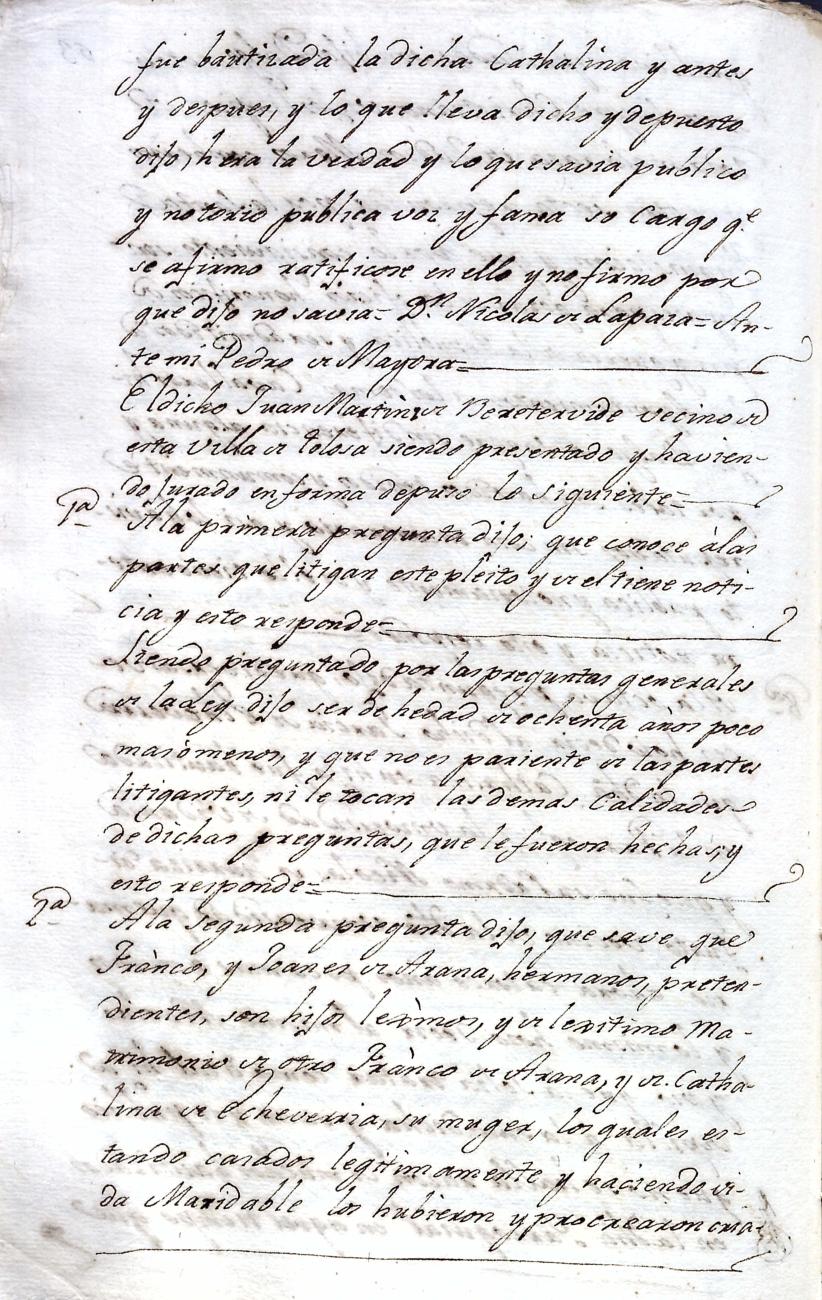 fue bautizada la dicha Cathalina y antes
y despues, y lo que lleva dicho y depuesto
dijo, hera la verdad y lo que savia publico
y notorio publica voz y fama so cargo q.e
se afirmo ratificose en ello y no firmo por
que dijo no savia= D.n Nicolas de Lapaza= An-
te mi Pedro de Mayora=
El dicho Juan Martin de Berotervide vecino de
esta villa de tolosa siendo presentado y havien-
do Jurado en forma depuso lo siguiente=
1a
A la primera pregunta dijo; que conoce à las
partes que litigan este pleito y de el tiene noti-
cia y esto responde=
Siendo preguntado por las preguntas generales
de la Ley dijo ser de hedad de ochenta años poco
mas ò menos, y que no es pariente de las partes
litigantes, ni le tocan las demas Calidades
de dichas preguntas, que le fueron hechas; y
esto responde=
2a
A la segunda pregunta dijo, que save que
Franco, y Joanes de Arana, hermanos, preten-
dientes, son hijos lexmos, y de lexitimo Ma-
trimonio de otro Franco de Arana, y de Catha-
lina de Echeverria, su muger, los quales es-
tando casados legitimamente y haciendo vi-
da Maridable los hubieron y procrearon cria-